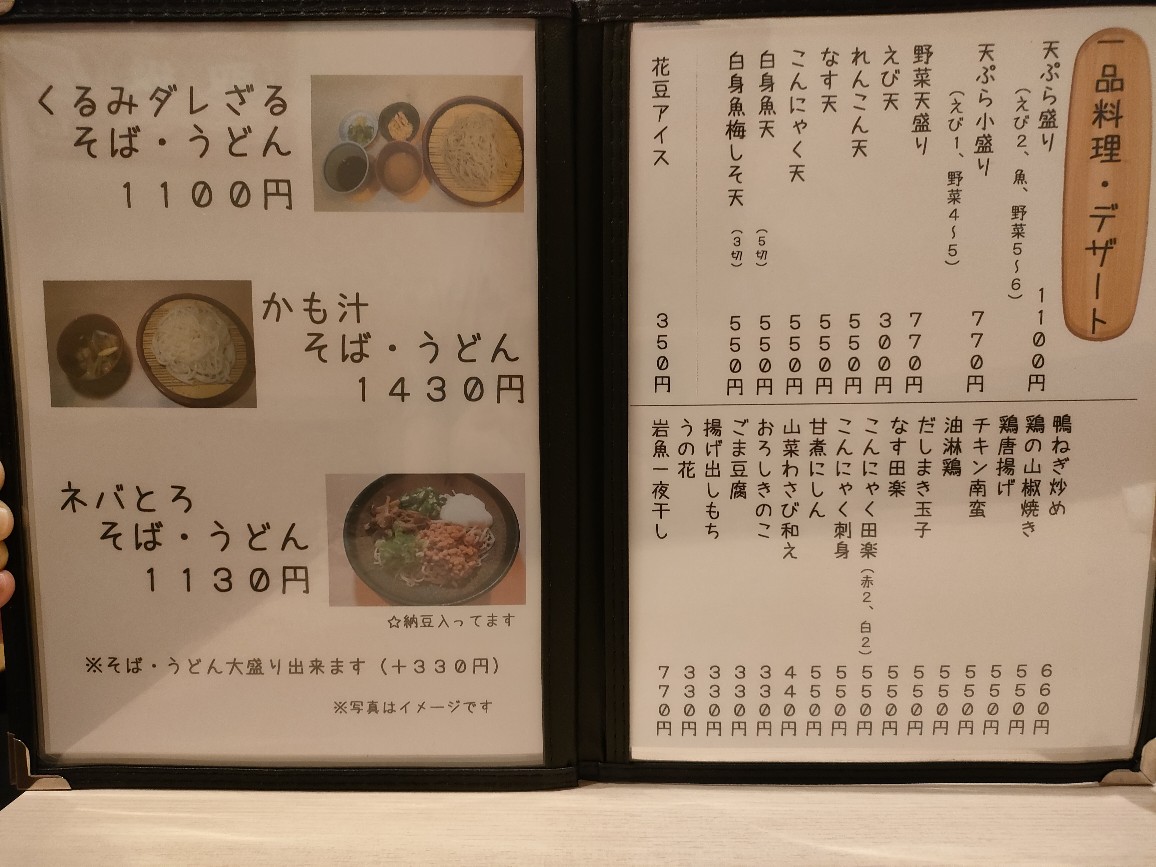 くるみダレざる
そば・うどん
１１００円
かも汁
そば・うどん
１４３０円
ネバとろ
そば・うどん
１１３０円
☆納豆入ってます
※そば・うどん大盛り出来ます（＋３３０円）
※写真はイメージです
一品料理・デザート
天ぷら盛り １１００円
（えび２、魚、野菜５～６）
天ぷら小盛り ７７０円
（えび１、野菜４～５）
野菜天盛り ７７０円
えび天 ３００円
れんこん天 ５５０円
なす天 ５５０円
こんにゃく天 ５５０円
白身魚天（５切） ５５０円
白身魚梅しそ天（３切） ５５０円
花豆アイス ３５０円
鴨ねぎ炒め ６６０円
鶏の山椒焼き ５５０円
鶏唐揚げ ５５０円
チキン南蛮 ５５０円
油淋鶏 ５５０円
だしまき玉子 ５５０円
なす田楽 ５５０円
こんにゃく田楽（赤２、白２） ５５０円
こんにゃく刺身 ５５０円
甘煮にしん ５５０円
山菜わさび和え ４４０円
おろしきのこ ３３０円
ごま豆腐 ３３０円
揚げ出しもち ３３０円
うの花 ３３０円
岩魚一夜干し ７７０円